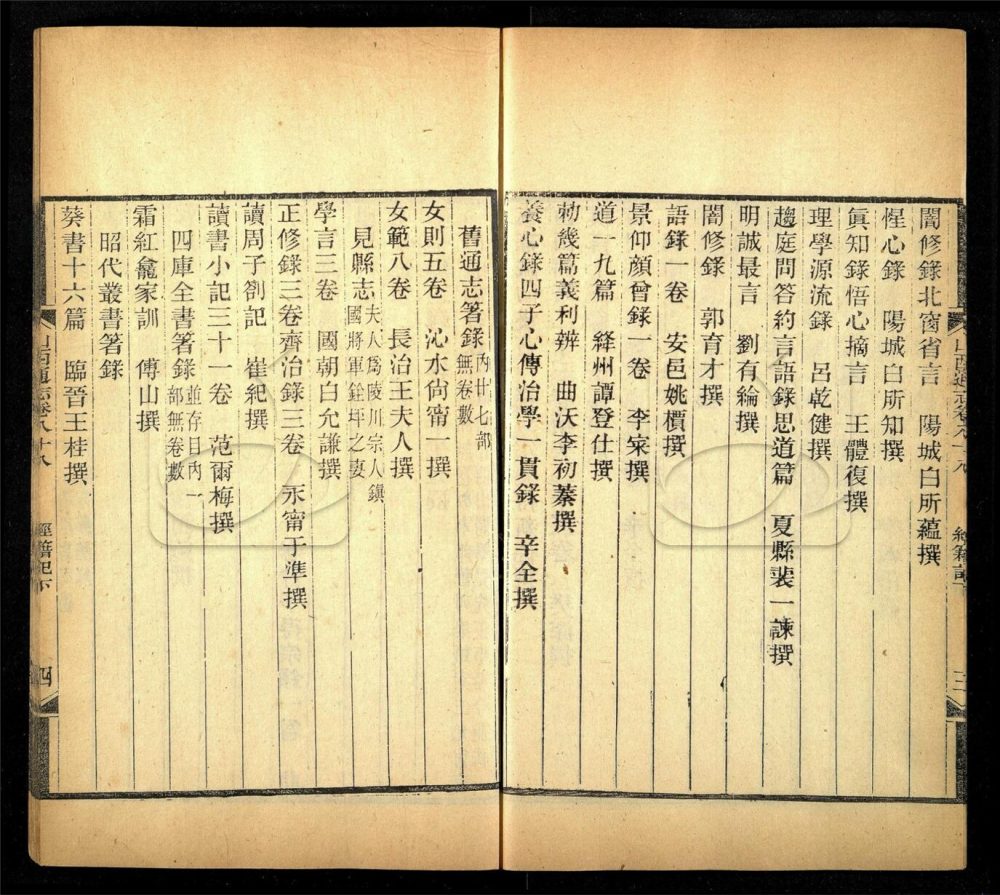 闇修錄北窗省言　陽城白所蘊撰
惺心錄　陽城白所知撰
眞知錄悟心摘言　王體復撰
理學源流錄　呂乾健撰
趨庭問答約言語錄思道篇　夏縣裴一諫撰
明誠最言　劉有綸撰
闇修錄　郭育才撰
語錄一卷　安邑姚櫝撰
景仰顏曾錄一卷　李寀撰
道一九篇　絳州譚登仕撰
勅幾篇義利辨　曲沃李初蓁撰
養心錄四子心傳治學一貫錄　辛全撰
舊通志箸錄內廿七部無卷數
女則五卷　沁水尙甯一撰
女範八卷　長治王夫人撰
見縣志夫人爲陵川宗人鎭國將軍銓坪之妻
學言三卷　國朝白允謙撰
正修錄三卷齊治錄三卷　永甯于準撰
讀周子劄記　崔紀撰
讀書小記三十一卷　范爾梅撰
四庫全書箸錄並存目內一部無卷數
霜紅龕家訓　傅山撰
昭代叢書箸錄
葵書十六篇　臨晉王桂撰
經籍記下
四